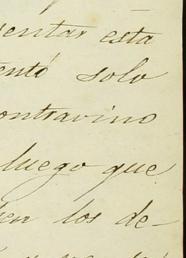 sentar esta
tentó solo
contravino
luego que
en los de-